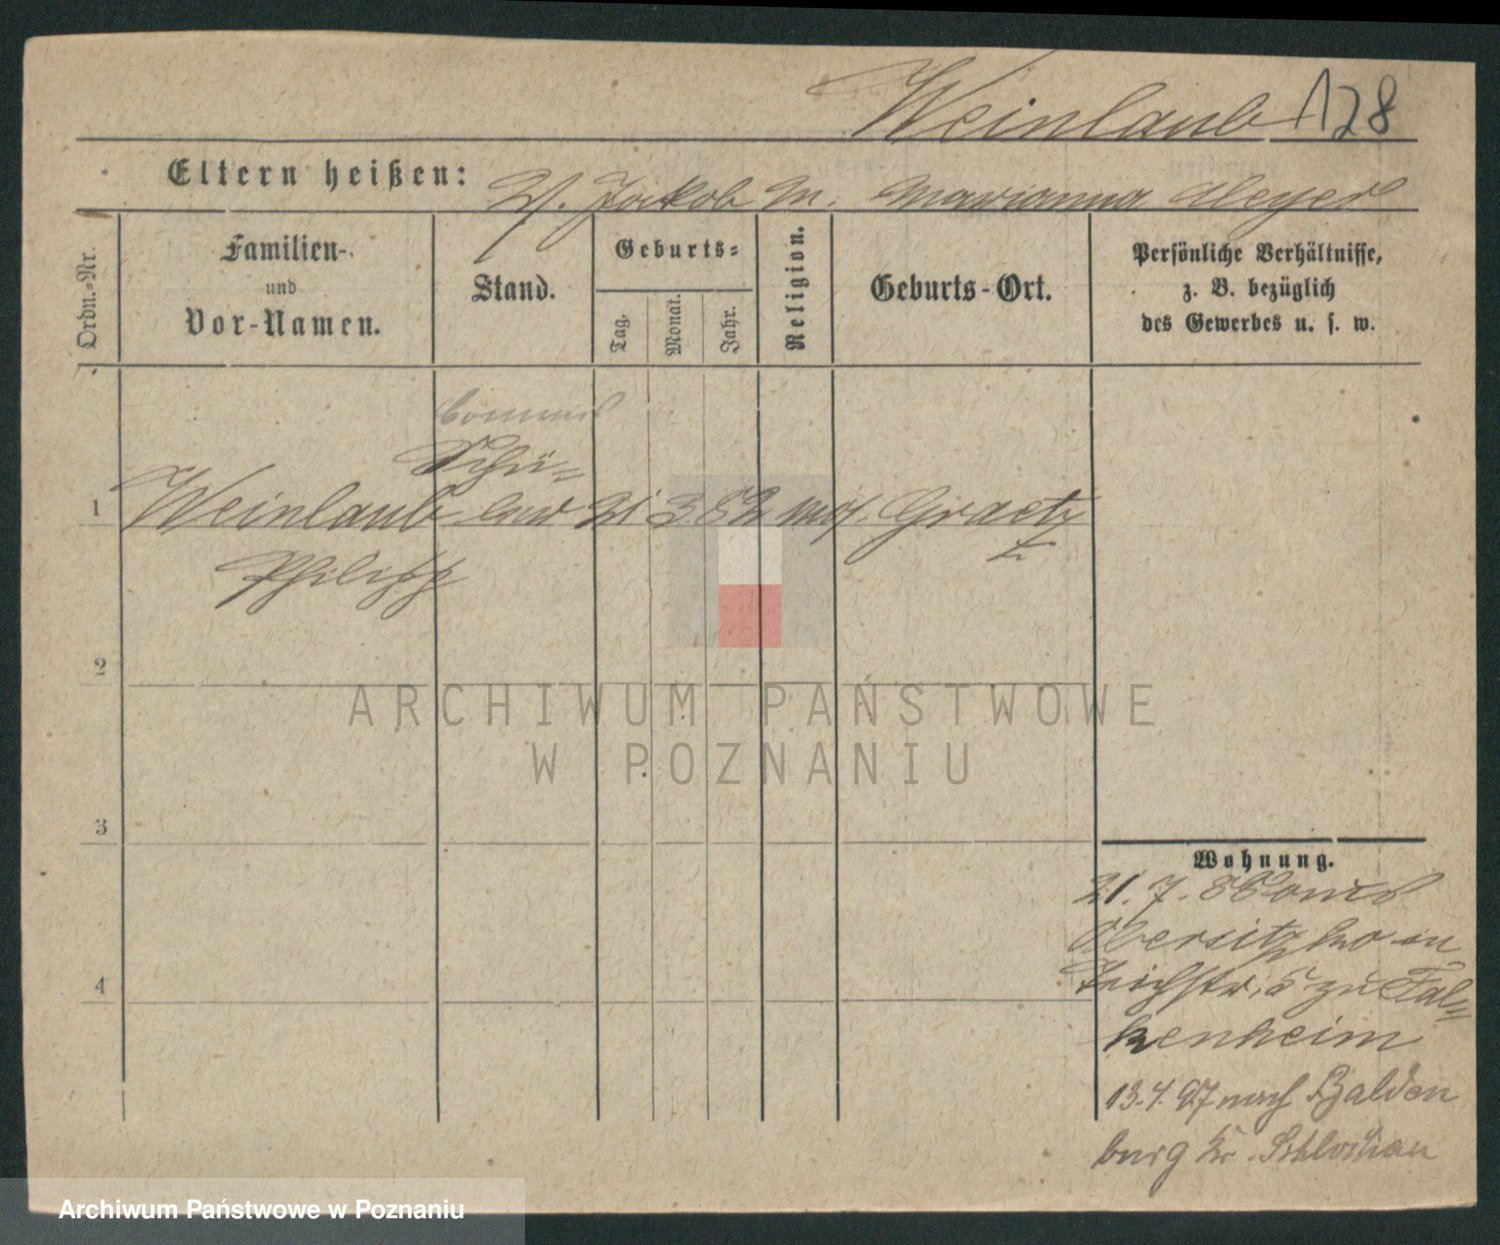 Weinlaub 128
Eltern heißen: V. Jakob M. Marianna Meyer
Ordn.-Nr.
Familien-
und
Vor-Namen.
Stand.
Geburts-
Tag.
Monat.
Jahr.
Religion.
Geburts-Ort.
Persönliche Verhältnisse,
z. B. bezüglich
des Gewerbes u. s. w.
Commis
Schü-
1 Weinlaub ler 21 3. 82 mos. Graetz
Philipp
2
3
4
Wohnung.
21. 7. 86 von
Obersitzko an
Teichstr. 5 zu Fal-
kenheim
13.4.97 nach Balden
burg Kr. Schlochau
ARCHIWUM PAŃSTWOWE
W POZNANIU
Archiwum Państwowe w Poznaniu